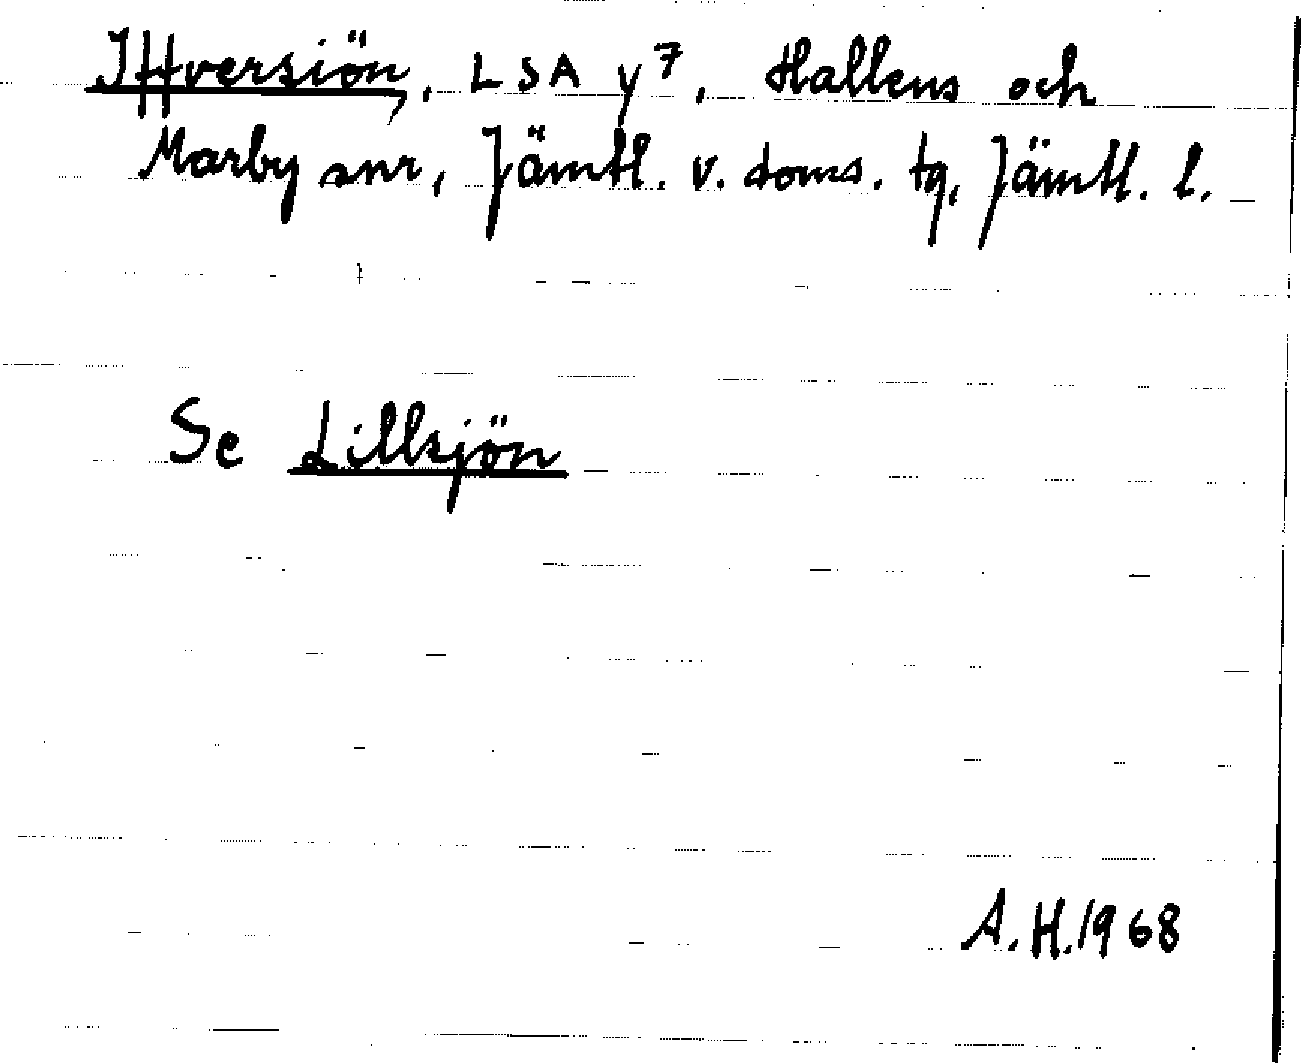 Iffversiön, LSA y7, Hallens och
Marby snr, Jämtl. v. doms. tg, Jämtl. l.
Se Lillsjön
A.H. 1968